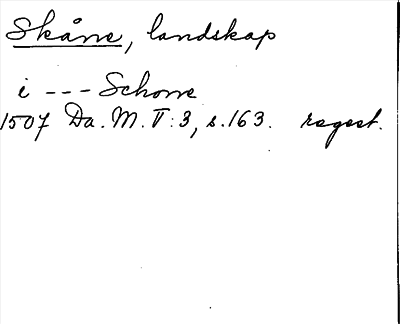 Skåne, landskap
i --- Schone
1507 Da. M. V:3, s.163. regest.